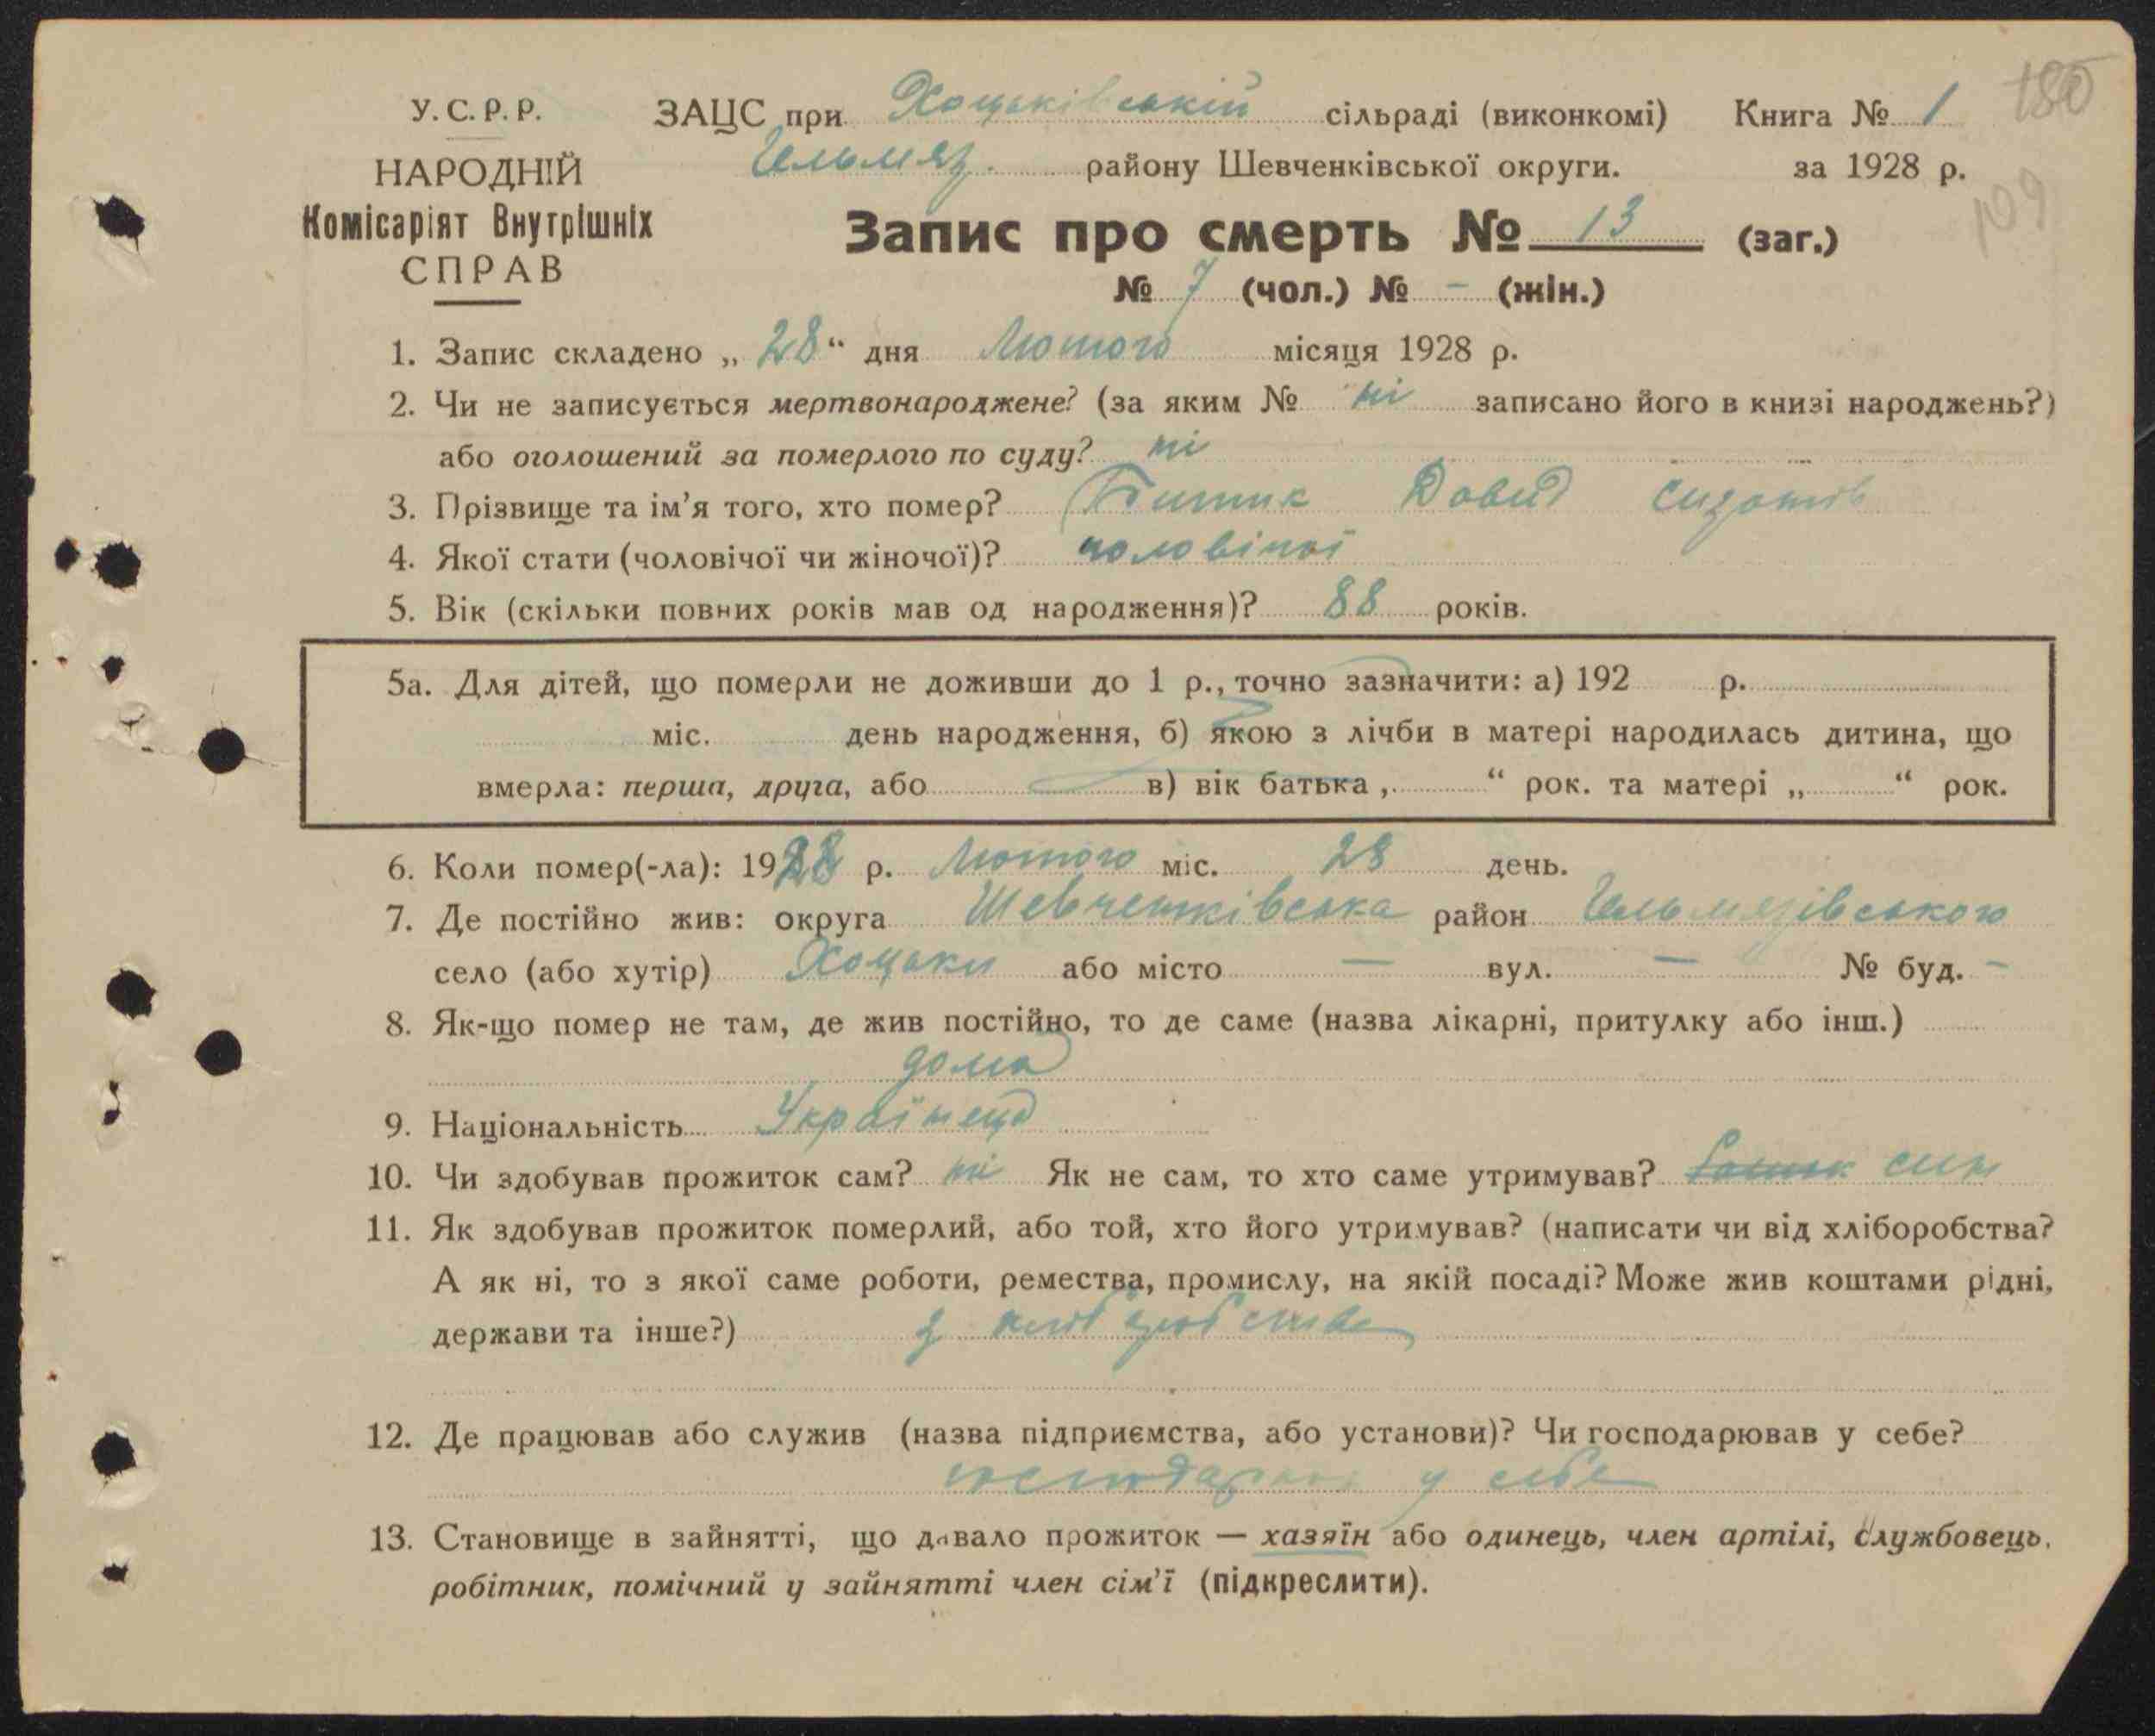 У. С. Р. Р. ЗАЦС при Хоцьківській сільраді (виконкомі) Книга № 1 180
Гельмяз. району Шевченківської округи. за 1928 р.
НАРОДНІЙ
Комісаріят Внутрішніх
СПРАВ
109
Запис про смерть № 13 (заг.)
№ 7 (чол.) № - (жін.)
1. Запис складено „ 28 “ дня Лютого місяця 1928 р.
2. Чи не записується мертвонароджене? (за яким № ні записано його в книзі народжень?)
або оголошений за померлого по суду? ні
3. Прізвище та ім’я того, хто помер? Битик Давид
4. Якої стати (чоловічої чи жіночої)? чоловічої
5. Вік (скільки повних років мав од народження)? 88 років.
5а. Для дітей, що померли не доживши до 1 р., точно зазначити: а) 192 р.
міс. день народження, б) якою з лічби в матері народилась дитина, що
вмерла: перша, друга, або в) вік батька „ “ рок. та матері „ “ рок.
6. Коли помер(-ла): 1928 р. Лютого міс. 28 день.
7. Де постійно жив: округа Шевченківська район Гельмязівського
село (або хутір) Хоцьки або місто — вул. — № буд. -
8. Як-що помер не там, де жив постійно, то де саме (назва лікарні, притулку або інш.)
дома
9. Національність Українець
10. Чи здобував прожиток сам? ні Як не сам, то хто саме утримував? син
11. Як здобував прожиток померлий, або той, хто його утримував? (написати чи від хліборобства?
А як ні, то з якої саме роботи, ремества, промислу, на якій посаді? Може жив коштами рідні,
держави та інше?) з хліборобства
12. Де працював або служив (назва підприємства, або установи)? Чи господарював у себе?
у себе
13. Становище в зайнятті, що давало прожиток — хазяїн або одинець, член артілі, службовець,
робітник, помічний у зайнятті член сім’ї (підкреслити).